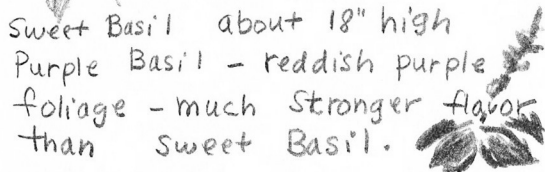 Sweet Basil about 18" high
Purple Basil - reddish purple
foliage - much Stronger flavor
than sweet Basil.